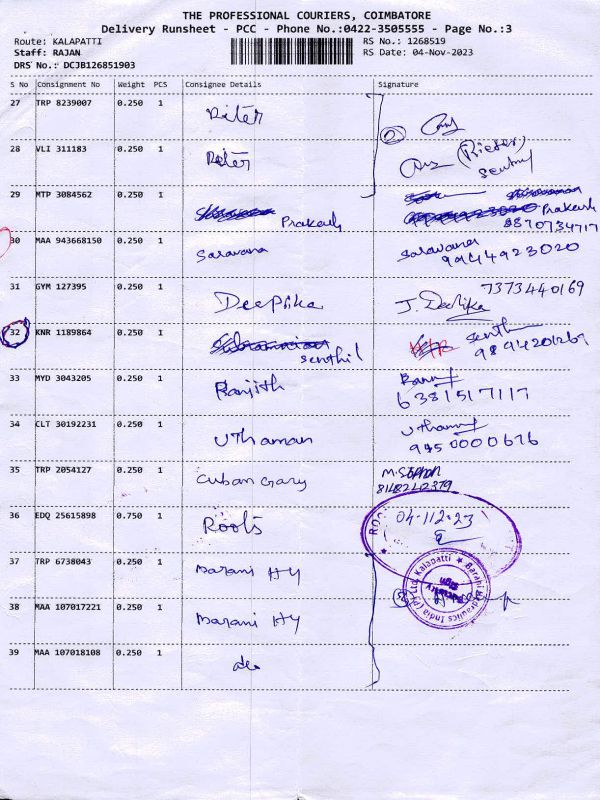 THE PROFESSIONAL COURIERS, COIMBATORE
Delivery Runsheet - PCC - Phone No.:0422-3505555 - Page No.:3
Route: KALAPATTI RS No.: 1268519
Staff: RAJAN RS Date: 04-Nov-2023
DRS No.: DCJB126851903
S No Consignment No Weight PCS Consignee Details Signature
27 TRP 8239007 0.250 1 Rieter
28 VLI 311183 0.250 1 Rieter (Rieter)
29 MTP 3084562 0.250 1 Prakash Prakash
8870734717
30 MAA 943668150 0.250 1 Saravana Saravana
9944923020
31 GYM 127395 0.250 1 Deepika J. Deepika 7373440169
32 KNR 1189864 0.250 1 Senthil Senthil
9894201269
33 MYD 3043205 0.250 1 Ranjith
6381517117
34 CLT 30192231 0.250 1 Uthaman
9450000676
35 TRP 2054127 0.250 1 Cuban Gary M. Stephen
36 EDQ 25615898 0.750 1 Roots 04-112-23
37 TRP 6738043 0.250 1 Barani Hy
Barani Hydraulics India (P) Ltd. Kalapatti
Security
Sign
38 MAA 107017221 0.250 1 Barani Hy
39 MAA 107018108 0.250 1 do